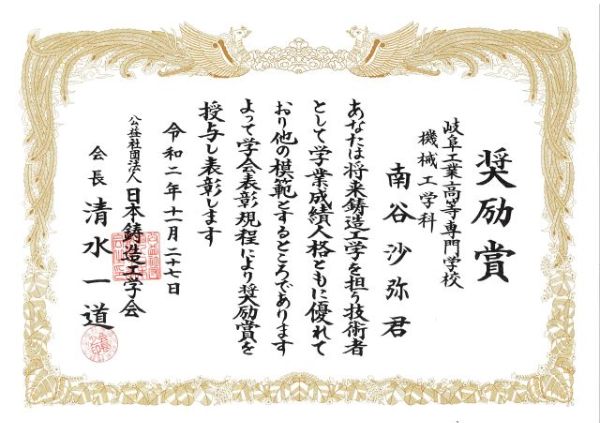 奨励賞
岐阜工業高等専門学校
機械工学科
南谷沙弥君
あなたは将来鋳造工学を担う技術者
として学業成績人格ともに優れて
おり他の模範とするところであります
よって学会表彰規程により奨励賞を
授与し表彰します
令和二年十一月二十七日
公益社団法人日本鋳造工学会
会長清水一道